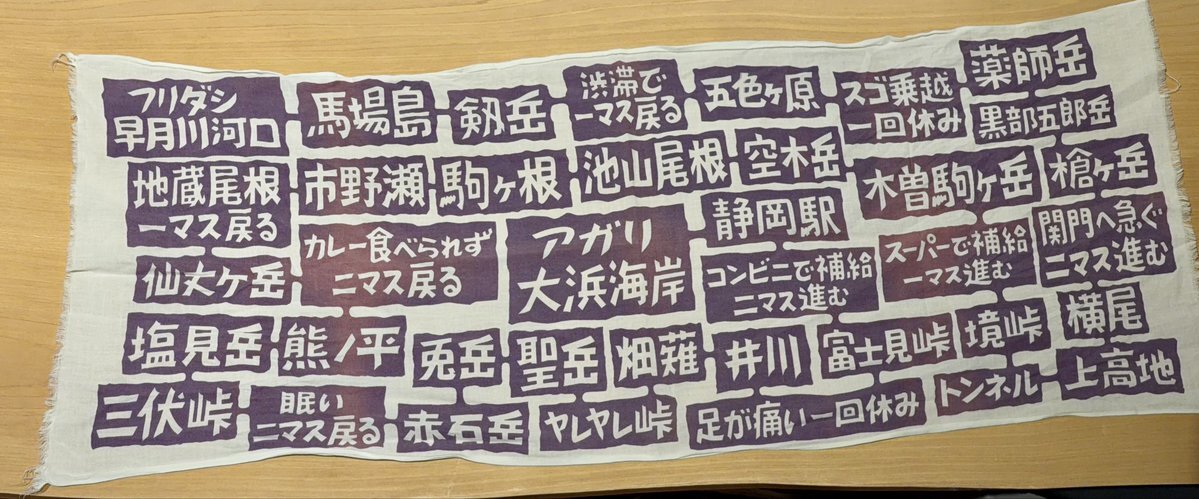 フリダシ
早月川河口
馬場島
剱岳
渋滞で
一マス戻る
五色ヶ原
スゴ乗越
一回休み
薬師岳
黒部五郎岳
地蔵尾根
一マス戻る
市野瀬
駒ヶ根
池山尾根
空木岳
木曽駒ヶ岳
槍ヶ岳
仙丈ヶ岳
カレー食べられず
二マス戻る
アガリ
大浜海岸
静岡駅
コンビニで補給
二マス進む
スーパーで補給
一マス進む
関門へ急ぐ
二マス進む
塩見岳
熊ノ平
兎岳
聖岳
畑薙
井川
富士見峠
境峠
横尾
三伏峠
眠い
二マス戻る
赤石岳
ヤレヤレ峠
足が痛い一回休み
トンネル
上高地